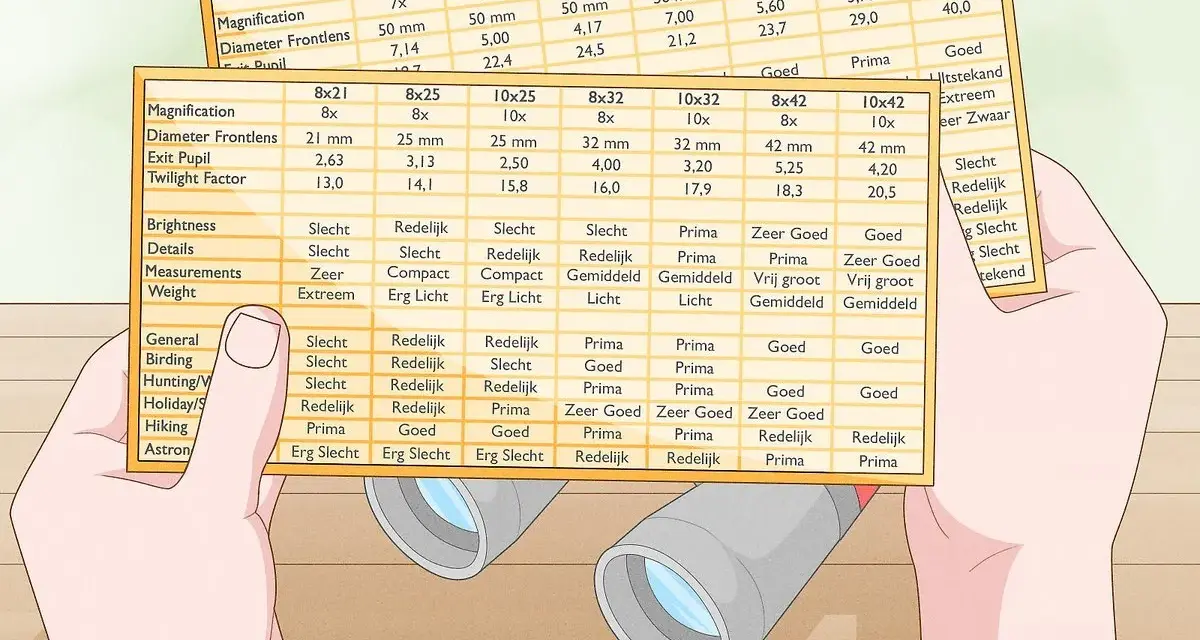 7x
Magnification 50 mm 50 mm 50 mm 7,00 5,60 29,0 40,0
Diameter Frontlens 7,14 5,00 4,17 21,2 23,7
Exit Pupil 22,4 24,5 Goed Prima Goed
Extreem
Zwaar
Slecht
Redelijk
Redelijk
Slecht
Slecht
8x21 8x25 10x25 8x32 10x32 8x42 10x42
Magnification 8x 8x 10x 8x 10x 8x 10x
Diameter Frontlens 21 mm 25 mm 25 mm 32 mm 32 mm 42 mm 42 mm
Exit Pupil 2,63 3,13 2,50 4,00 3,20 5,25 4,20
Twilight Factor 13,0 14,1 15,8 16,0 17,9 18,3 20,5
Brightness Slecht Redelijk Slecht Slecht Prima Zeer Goed Goed
Details Slecht Slecht Redelijk Redelijk Prima Prima Zeer Goed
Measurements Zeer Compact Compact Gemiddeld Gemiddeld Vrij groot Vrij groot
Weight Extreem Erg Licht Erg Licht Licht Licht Gemiddeld Gemiddeld
General Slecht Redelijk Redelijk Prima Prima Goed Goed
Birding Slecht Redelijk Slecht Goed Prima
Hunting/ Slecht Redelijk Redelijk Prima Prima Goed Goed
Holiday/ Redelijk Redelijk Prima Zeer Goed Zeer Goed Zeer Goed
Hiking Prima Goed Goed Prima Prima Redelijk Redelijk
Astron Erg Slecht Erg Slecht Erg Slecht Redelijk Redelijk Prima Prima